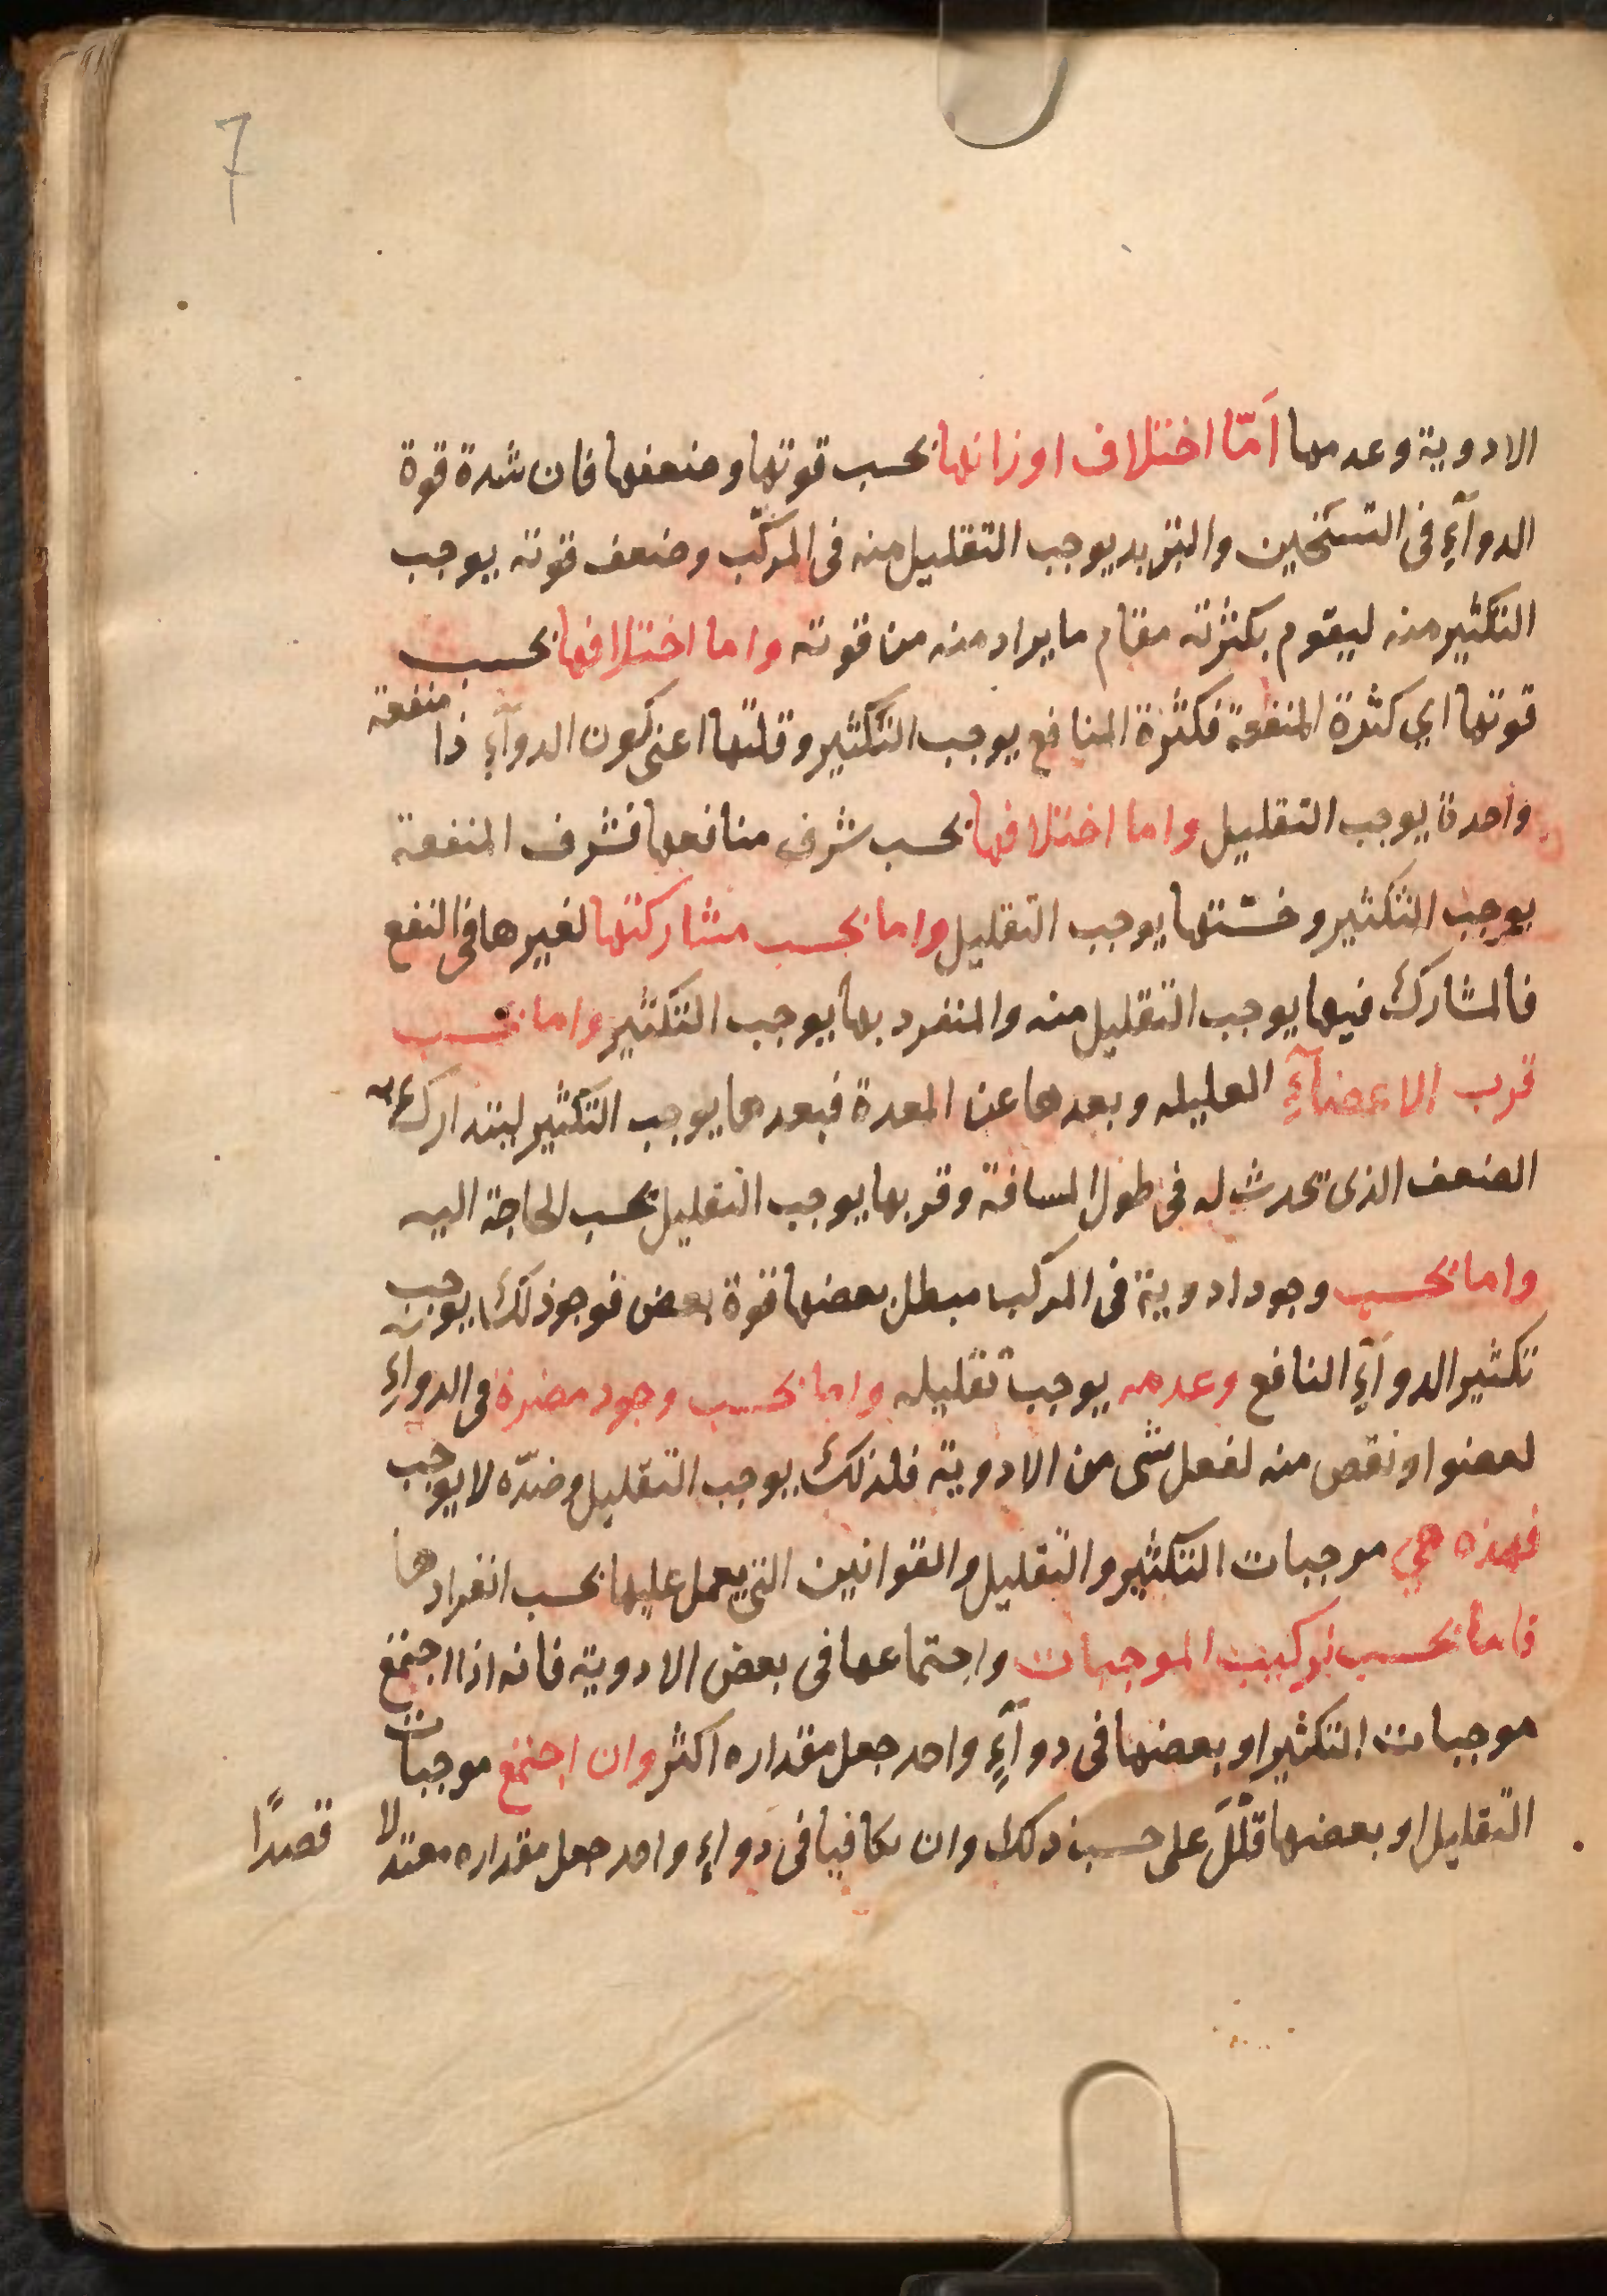 7
الادوية وعدمها اَمّا اختلاف اوزانها بحسب قوتها وضعفها فان شدة قوة
الدوآءِ فى التسخين والتبريد يوجب التقليل منه فى المركّب وضعف قوته يوجب
التكثير منه ليقوم بكثرته مقام ما يراد منه من قوته واما اختلافها بحسب
قوتها اي كثرة المنفعة فكثرة المنافع يوجب التكثير وقلتها اعنى كون الدوآءِ ذا منفعة
واحدة يوجب التقليل واما اختلافها بحسب شرف منافعها فشرف المنفعة
يوجب التكثير وخسّتها يوجب التقليل واما بحسب مشاركتها لغيرها فى النفع
فالمشارك فيها يوجب التقليل منه والمنفرد بها يوجب التكثير واما بحسب
قرب الاعضآءِ العليله وبعدها عن المعدة فبعدها يوجب التكثير ليتدارك به
الضعف الذى تحدث له فى طول المسافة وقربها يوجب التقليل بحسب الحاجة اليه
واما بحسب وجود ادوية فى المركب مبطل بعضها قوة بعض فوجود ذلك يوجب
تكثير الدوآءِ النافع وعدمه يوجب تقليله واما بحسب وجود مضرة فى الدواءِ
لعضو او نقص منه لفعل شى من الادوية فلذلك يوجب التقليل وضدّه لا يوجب
فهذه هي موجبات التكثير والتقليل والقوانين التى يعمل عليها بحسب انفرادها
فاما بحسب تركيب الموجبات واجتماعها فى بعض الادوية فانه اذا اجتمع
موجبات التكثير او بعضها فى دوآءٍ واحد جعل مقداره اكثر وان اجتمع موجبات
التقليل او بعضها قلّلَ على حسب ذلك وان تكافيا فى دواءٍ واحد جعل مقداره معتدلا
قصدًا